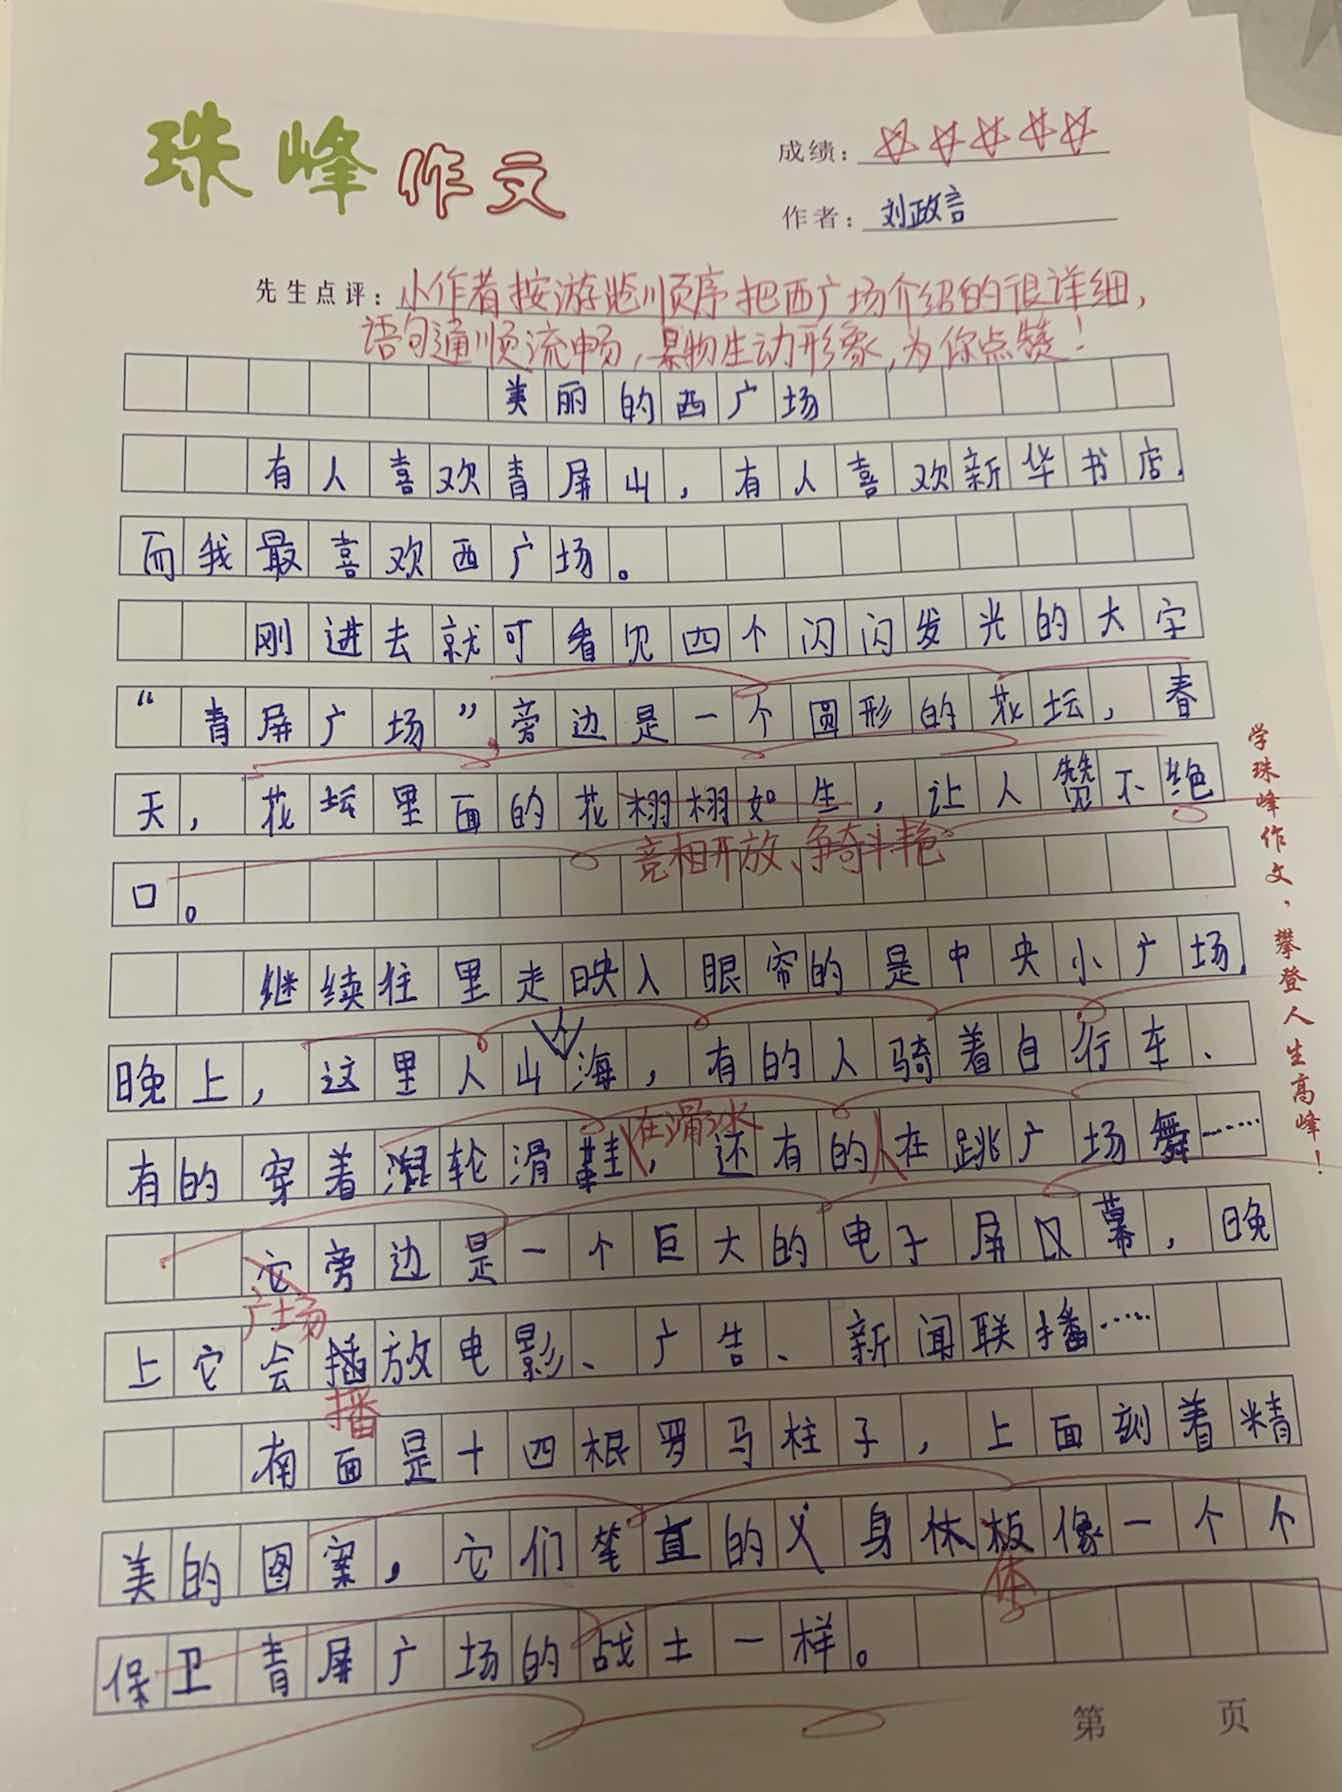 珠峰作文
成绩：☆☆☆☆☆
作者：刘政言
先生点评：小作者按游览顺序把西广场介绍的很详细，
语句通顺流畅，景物生动形象，为你点赞！
美丽的西广场
有人喜欢青屏山，有人喜欢新华书店，
而我最喜欢西广场。
刚进去就可看见四个闪闪发光的大字
“青屏广场”旁边是一个圆形的花坛，春
天，花坛里面的花栩栩如生，让人赞不绝
竞相开放、争奇斗艳
口。
继续往里走映入眼帘的是中央小广场，
晚上，这里人山人海，有的人骑着自行车、
在滑冰 人
有的穿着滑轮滑鞋，还有的在跳广场舞……
它旁边是一个巨大的电子屏幕，晚
广场
上它会插放电影、广告、新闻联播……
播
南面是十四根罗马柱子，上面刻着精
美的图案，它们笔直的身体板像一个个
体
保卫青屏广场的战士一样。
第 页
学珠峰作文，攀登人生高峰！